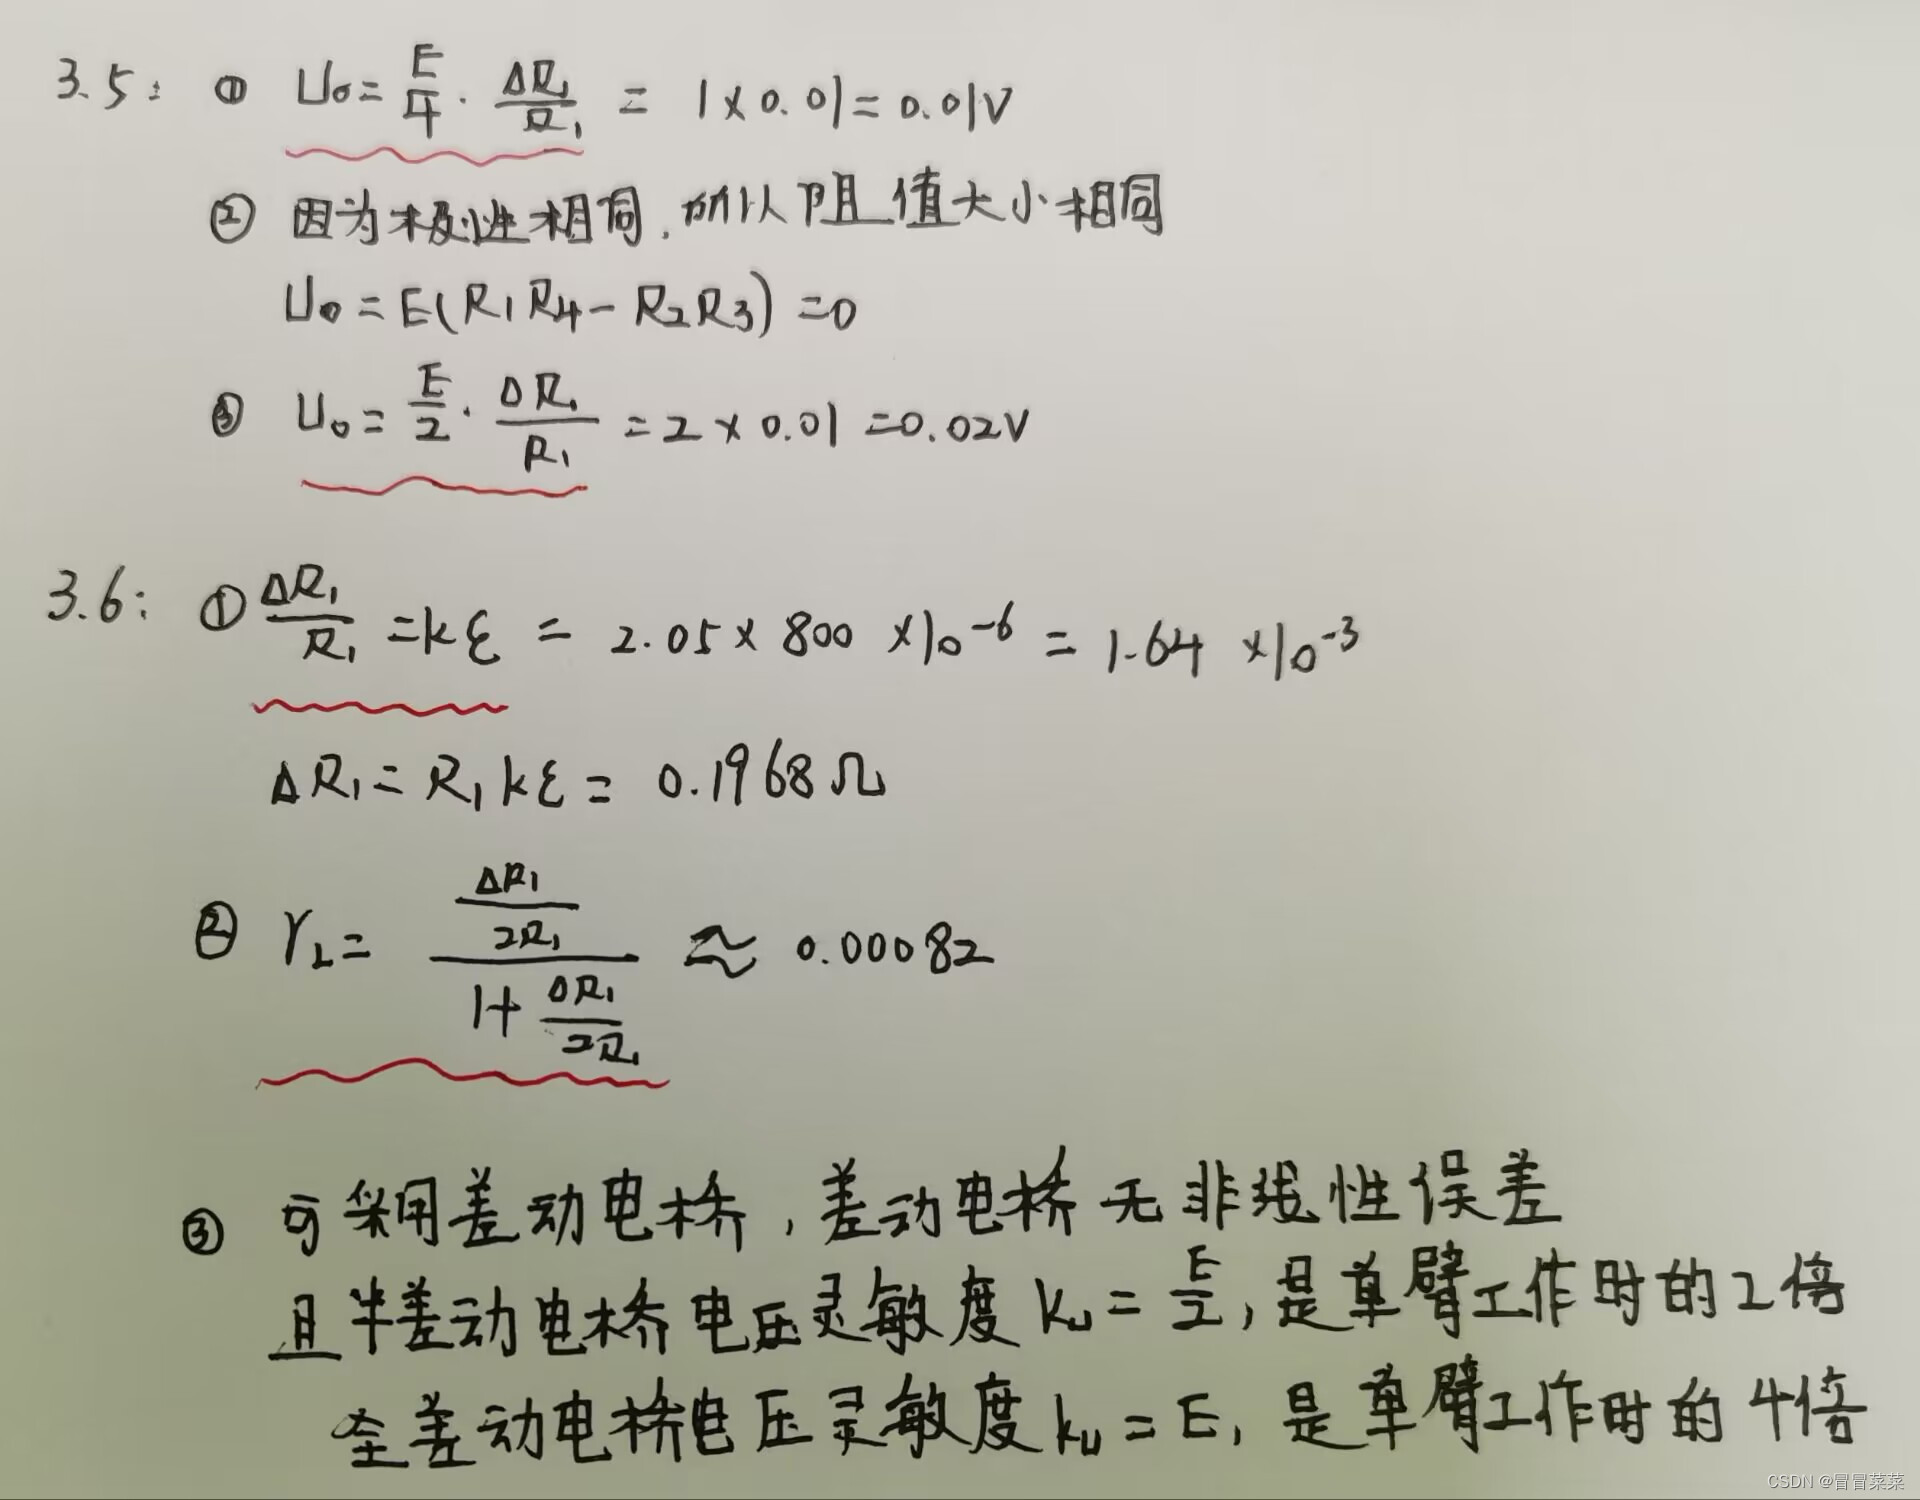 3.5: ① U₀ = E/4 · ΔR₁/R₁ = 1×0.01 = 0.01V
② 因为极性相同,所以阻值大小相同
U₀ = E(R₁R₄-R₂R₃) = 0
③ U₀ = E/2 · ΔR₁/R₁ = 2×0.01 = 0.02V
3.6: ① ΔR₁/R₁ = kε = 2.05×800×10⁻⁶ = 1.64×10⁻³
ΔR₁ = R₁kε = 0.1968Ω
② γL = (ΔR₁/2R₁)/(1+ΔR₁/2R₁) ≈ 0.00082
③ 可采用差动电桥,差动电桥无非线性误差
且半差动电桥电压灵敏度 kᵤ = E/2, 是单臂工作时的2倍
全差动电桥电压灵敏度 kᵤ = E, 是单臂工作时的4倍
CSDN @冒冒菜菜